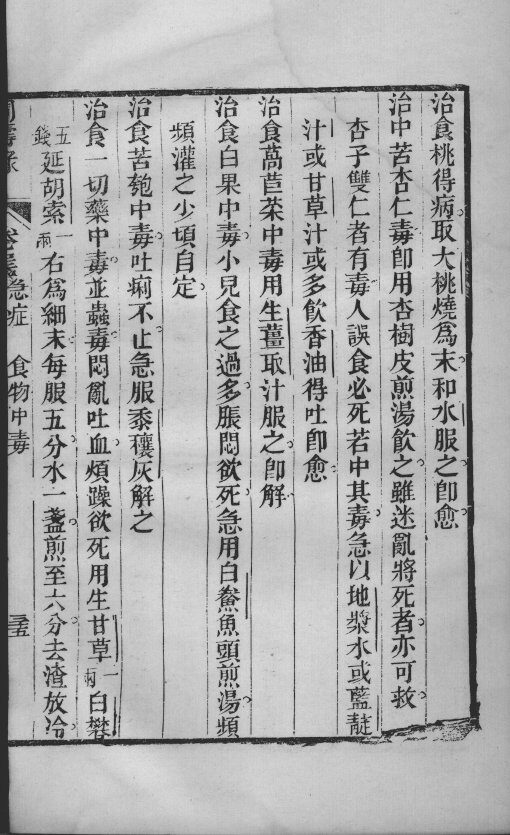 治食桃得病取大桃燒爲末和水服之卽愈
治中苦杏仁毒卽用杏樹皮煎湯飮之雖迷亂將死者亦可救
杏子雙仁者有毒人誤食必死若中其毒急以地漿水或藍靛
汁或甘草汁或多飮香油得吐卽愈
治食萵苣菜中毒用生薑取汁服之卽解
治食白果中毒小兒食之過多脹悶欲死急用白鯗魚頭煎湯頻
頻灌之少頃自定
治食苦匏中毒吐痢不止急服黍穰灰解之
治食一切藥中毒並蟲毒悶亂吐血煩躁欲死用生甘草一兩白礬
五錢延胡索一兩右爲細末每服五分水一盞煎至六分去渣放冷
急症 食物中毒